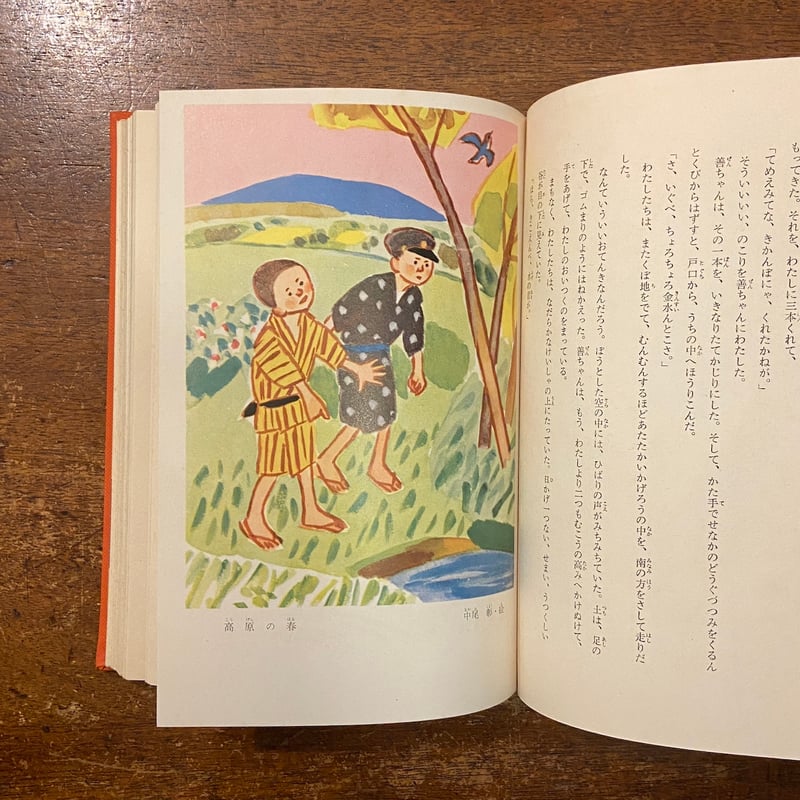 もってきた。それを、わたしに三本くれて、
「てめえみてな、きかんぼにゃ、くれたかねが。」
そういいいい、のこりを善ちゃんにわたした。
善ちゃんは、その一本を、いきなりたてかじりにした。そして、かた手でせなかのどうぐづつみをくるん
とくびからはずすと、戸口から、うちの中へほうりこんだ。
「さ、いぐべ、ちょろちょろ金水んとこさ。」
わたしたちは、またくぼ地をでて、むんむんするほどあたたかいかげろうの中を、南の方をさして走りだ
した。
なんていういいおてんきなんだろう。ぼうとした空の中には、ひばりの声がみちみちていた。土は、足の
下で、ゴムまりのようにはねかえった。善ちゃんは、もう、わたしより二つもむこうの高みへかけぬけて、
手をあげて、わたしのおいつくのをまっている。
まもなく、わたしたちは、なだらかなけいしゃの上にたっていた。日かげ一つない、せまい、うつくしい
谷が目の下に見えていた。
高原の春
中尾 彰・絵